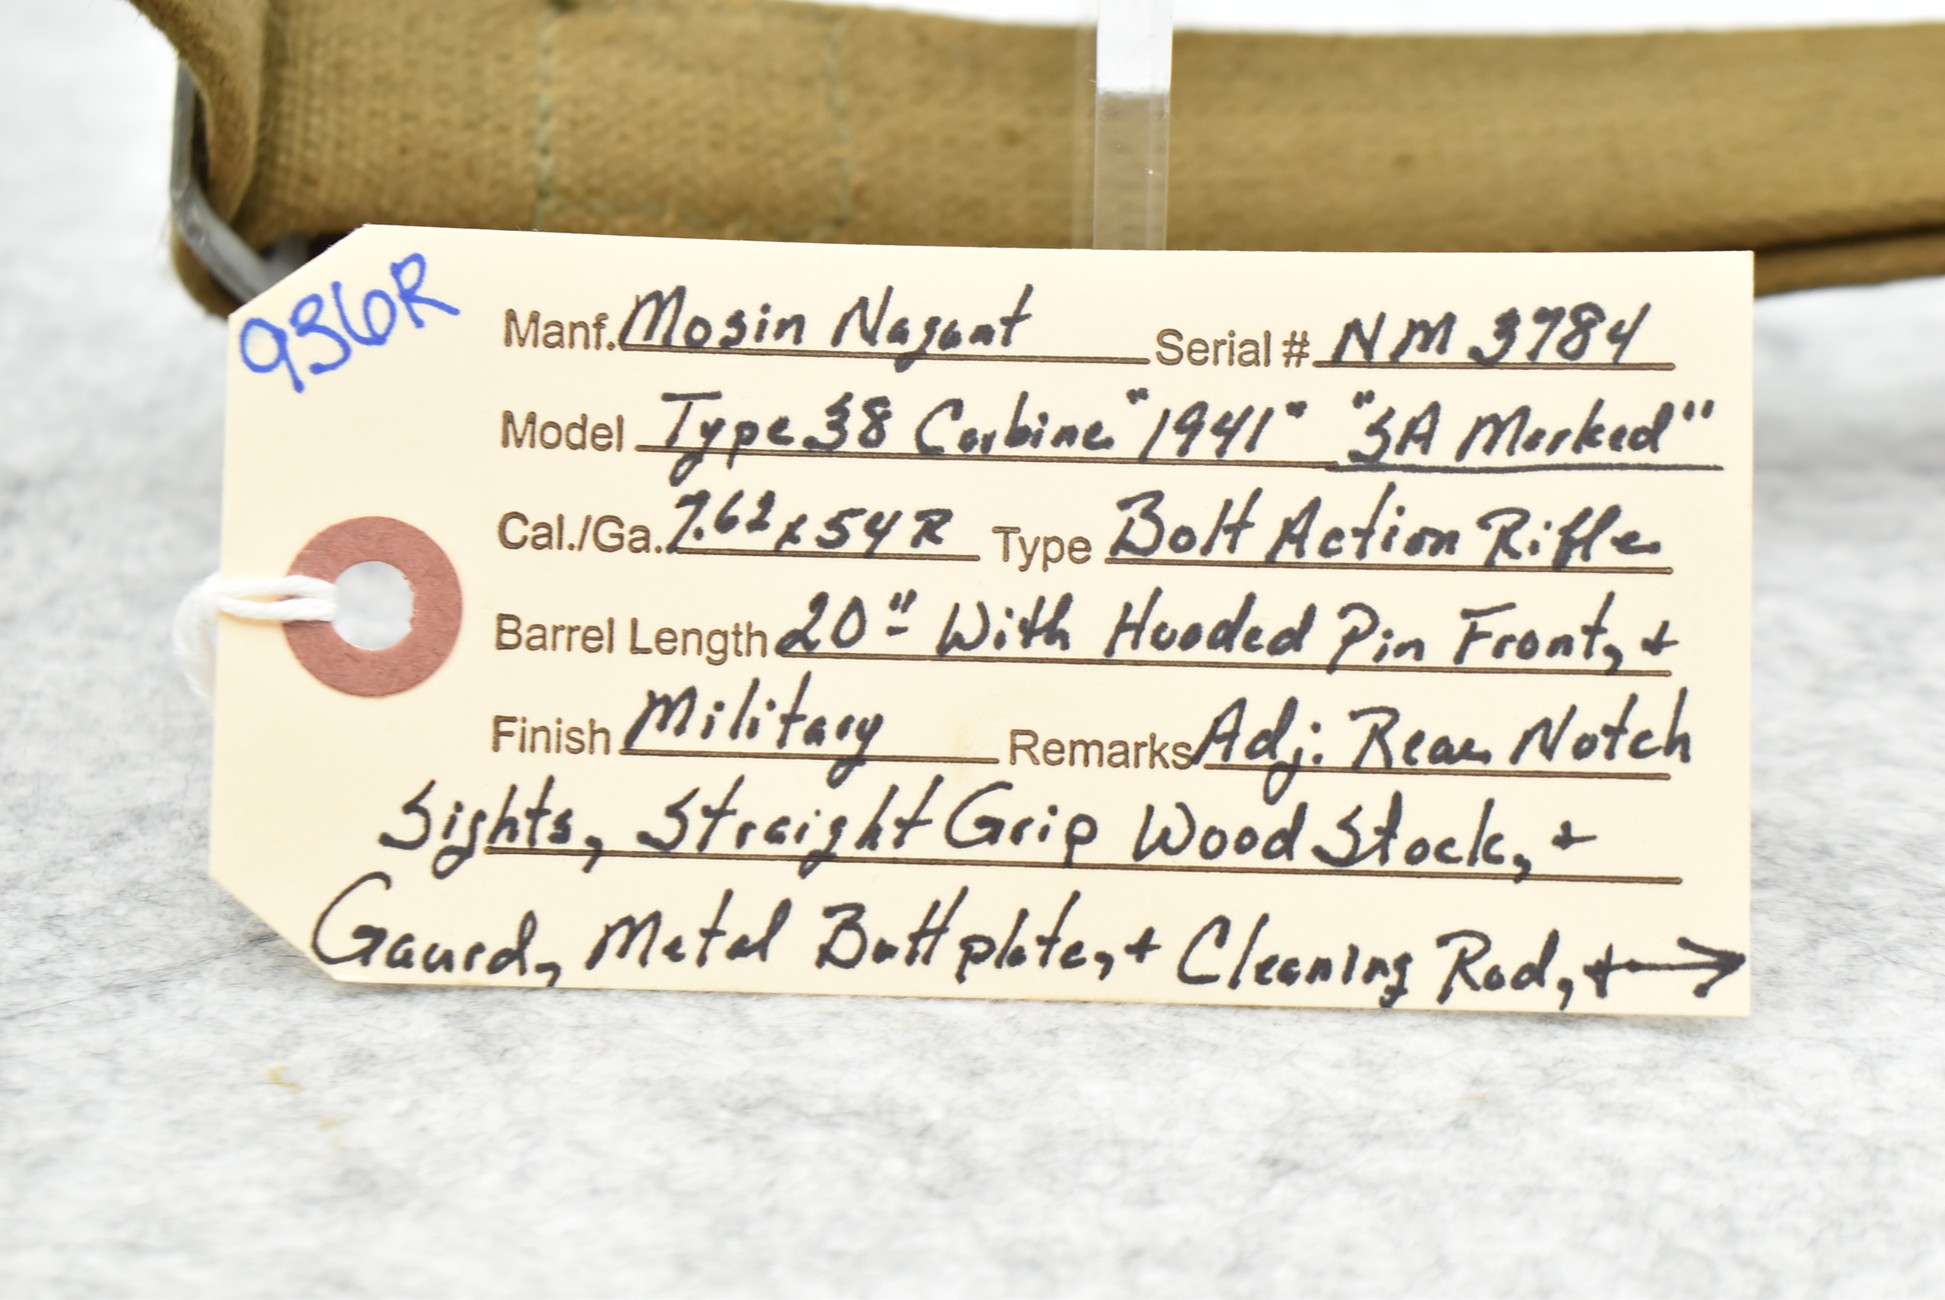 936R
Manf. Mosin Nagant Serial # NM 3784
Model Type 38 Carbine "1941" "SA Marked"
Cal./Ga. 7.62x54R Type Bolt Action Rifle
Barrel Length 20" With Hooded Pin Front, +
Finish Military Remarks Adj. Rear Notch
Sights, Straight Grip Wood Stock, +
Gaurd, Metal Buttplate, + Cleaning Rod, + →